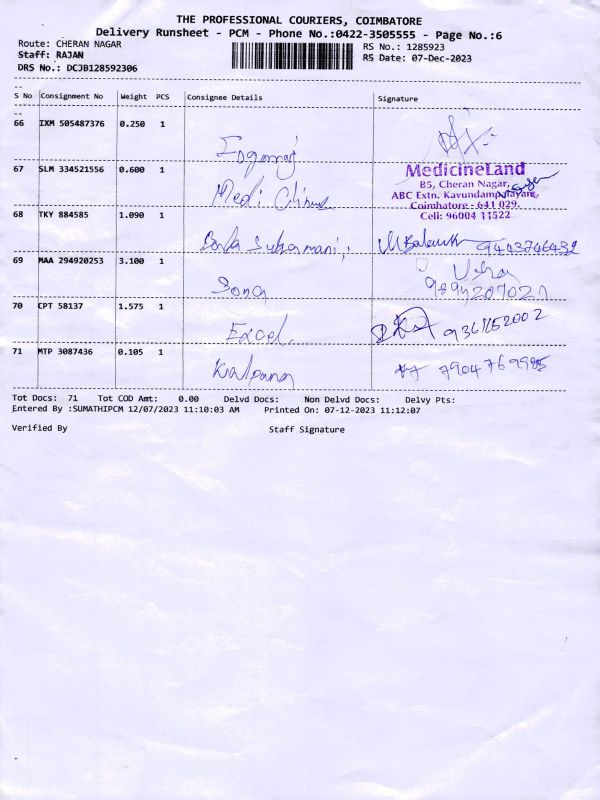 THE PROFESSIONAL COURIERS, COIMBATORE
Delivery Runsheet - PCM - Phone No.:0422-3505555 - Page No.:6
Route: CHERAN NAGAR
RS No.: 1285923
Staff: RAJAN
RS Date: 07-Dec-2023
DRS No.: DCJB128592306
S No Consignment No Weight PCS Consignee Details Signature
66 IXM 505487376 0.250 1
67 SLM 334521556 0.600 1
Medi
MedicineLand
B5, Cheran Nagar,
ABC Extn. Kavundampalayam,
Coimbatore - 641 029.
Cell: 96004 11522
68 TKY 884585 1.090 1
9443746432
69 MAA 294920253 3.100 1
Usha
70 CPT 58137 1.575 1
Excel
71 MTP 3087436 0.105 1
Kalpana 7904769985
Tot Docs: 71 Tot COD Amt: 0.00 Delvd Docs: Non Delvd Docs: Delvy Pts:
Entered By :SUMATHIPCM 12/07/2023 11:10:03 AM Printed On: 07-12-2023 11:12:07
Verified By Staff Signature